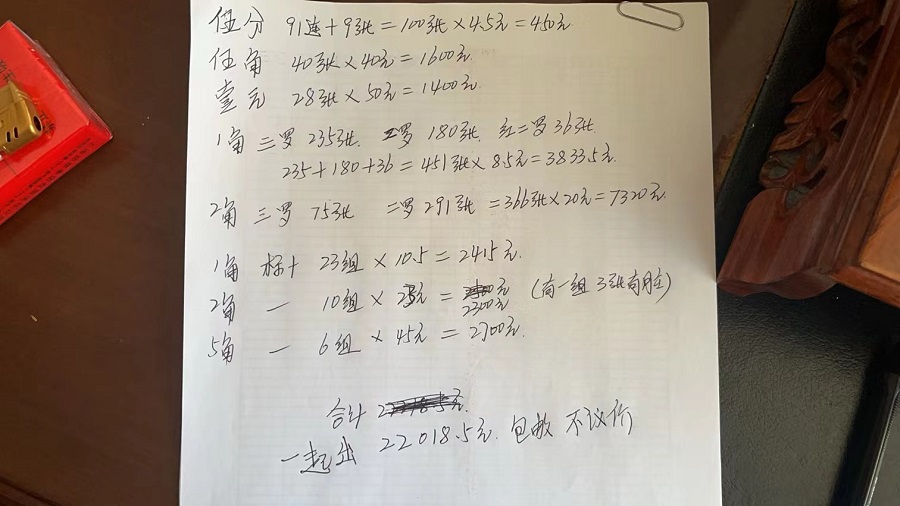 伍分 91连+9张=100张×4.5元=450元
伍角 40张×40元=1600元
壹元 28张×50元=1400元
1角 三罗 235张. 二罗 180张. 红二罗 36张.
235+180+36=451张×8.5元=3833.5元.
2角 三罗 75张 二罗 291张 =366张×20元=7320元.
1角 标十 23组×10.5=2415元.
2角 一 10组×23元= 2300元 (有一组 3张有脏)
5角 一 6组×45元=2700元.
合计
一起出 22018.5元. 包邮 不议价